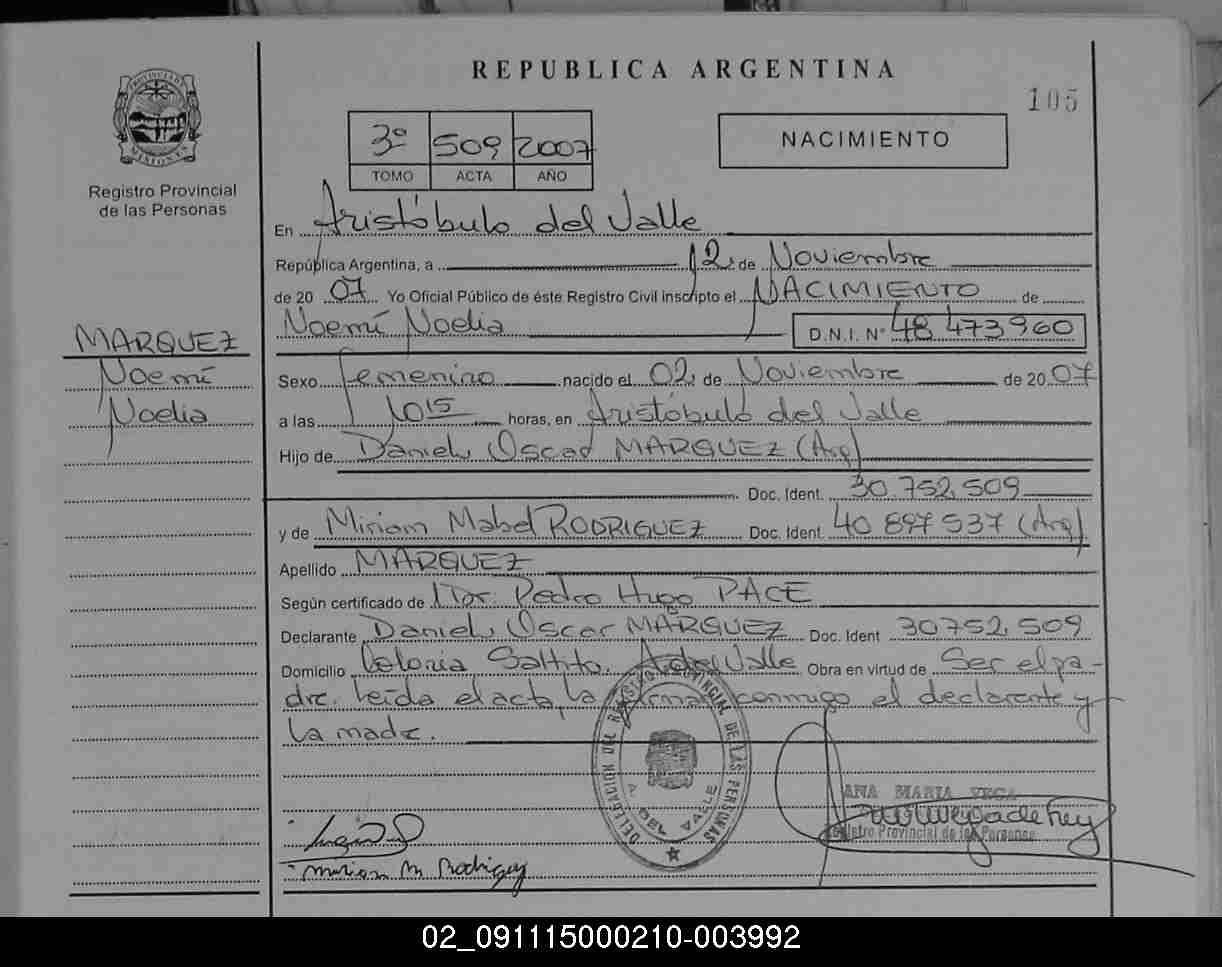 REPUBLICA ARGENTINA
105
PROVINCIA DE MISIONES
Registro Provincial
de las Personas
3º 509 2007
TOMO ACTA AÑO
NACIMIENTO
En Aristóbulo del Valle
República Argentina, a 12 de Noviembre
de 20 07 Yo Oficial Público de éste Registro Civil inscripto el NACIMIENTO de
Noemí Noelia D.N.I. Nº 48 473960
MARQUEZ
Noemí
Noelia
Sexo Femenino nacido el 02 de Noviembre de 20 07
a las 10 15 horas, en Aristóbulo del Valle
Hijo de Daniel Oscar MARQUEZ (Arg)
Doc. Ident. 30.752.509
y de Miriam Mabel RODRIGUEZ Doc. Ident 40 897 537 (Arg)
Apellido MARQUEZ
Según certificado de Dr. Pedro Hugo PACE
Declarante Daniel Oscar MARQUEZ Doc. Ident 30752.509
Domicilio Colonia Saltito. A. del Valle Obra en virtud de Ser el pa-
dre. Leída el acta, la firman conmigo el declarante y
la madre.
DELEGACION DEL REGISTRO PROVINCIAL DE LAS PERSONAS
A. DEL VALLE
ANA MARIA VEGA
Registro Provincial de las Personas
Miriam M Rodriguez
02_091115000210-003992